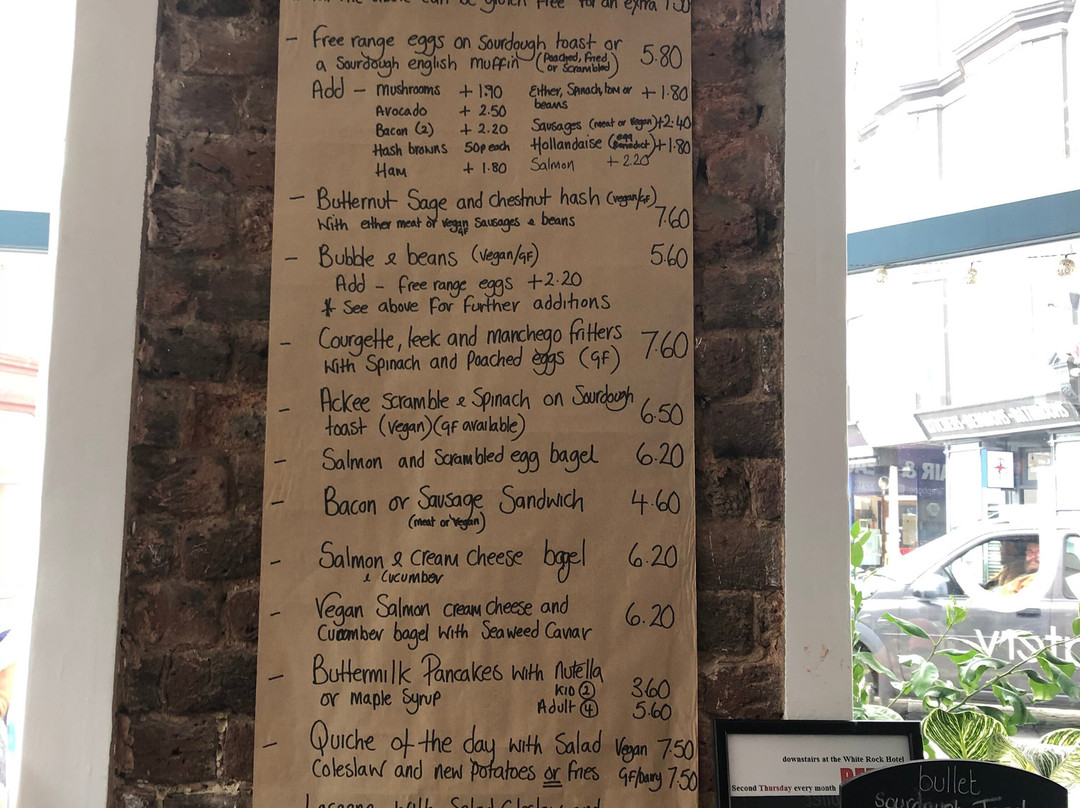 can be gluten free for an extra 1.50
- Free range eggs on Sourdough toast or
a Sourdough english muffin (Poached, Fried or Scrambled) 5.80
Add - Mushrooms + 1.90 Either, Spinach, tom or beans + 1.80
Avocado + 2.50
Bacon (2) + 2.20 Sausages (meat or vegan) +2.40
Hash browns 50p each Hollandaise (egg Benedict) +1.80
Ham + 1.80 Salmon + 2.20
- Butternut Sage and chestnut hash (vegan/GF)
With either meat or vegan GF Sausages & beans 7.60
- Bubble & beans (vegan/GF) 5.60
Add - free range eggs +2.20
* See above for further additions
- Courgette, leek and manchego fritters
with Spinach and Poached eggs (GF) 7.60
- Ackee scramble & Spinach on Sourdough
toast (vegan) (GF available) 6.50
- Salmon and Scrambled egg bagel 6.20
- Bacon or Sausage Sandwich 4.60
(meat or vegan)
- Salmon & cream cheese bagel 6.20
& Cucumber
- Vegan Salmon cream cheese and
Cucumber bagel with Seaweed Caviar 6.20
- Buttermilk Pancakes with Nutella
or Maple Syrup Kid (2) 3.60
Adult (4) 5.60
- Quiche of the day with Salad Vegan 7.50
Coleslaw and new potatoes or fries GF/Dairy 7.50
with Salad
downstairs at the White Rock Hotel
Second Thursday every month
bullet